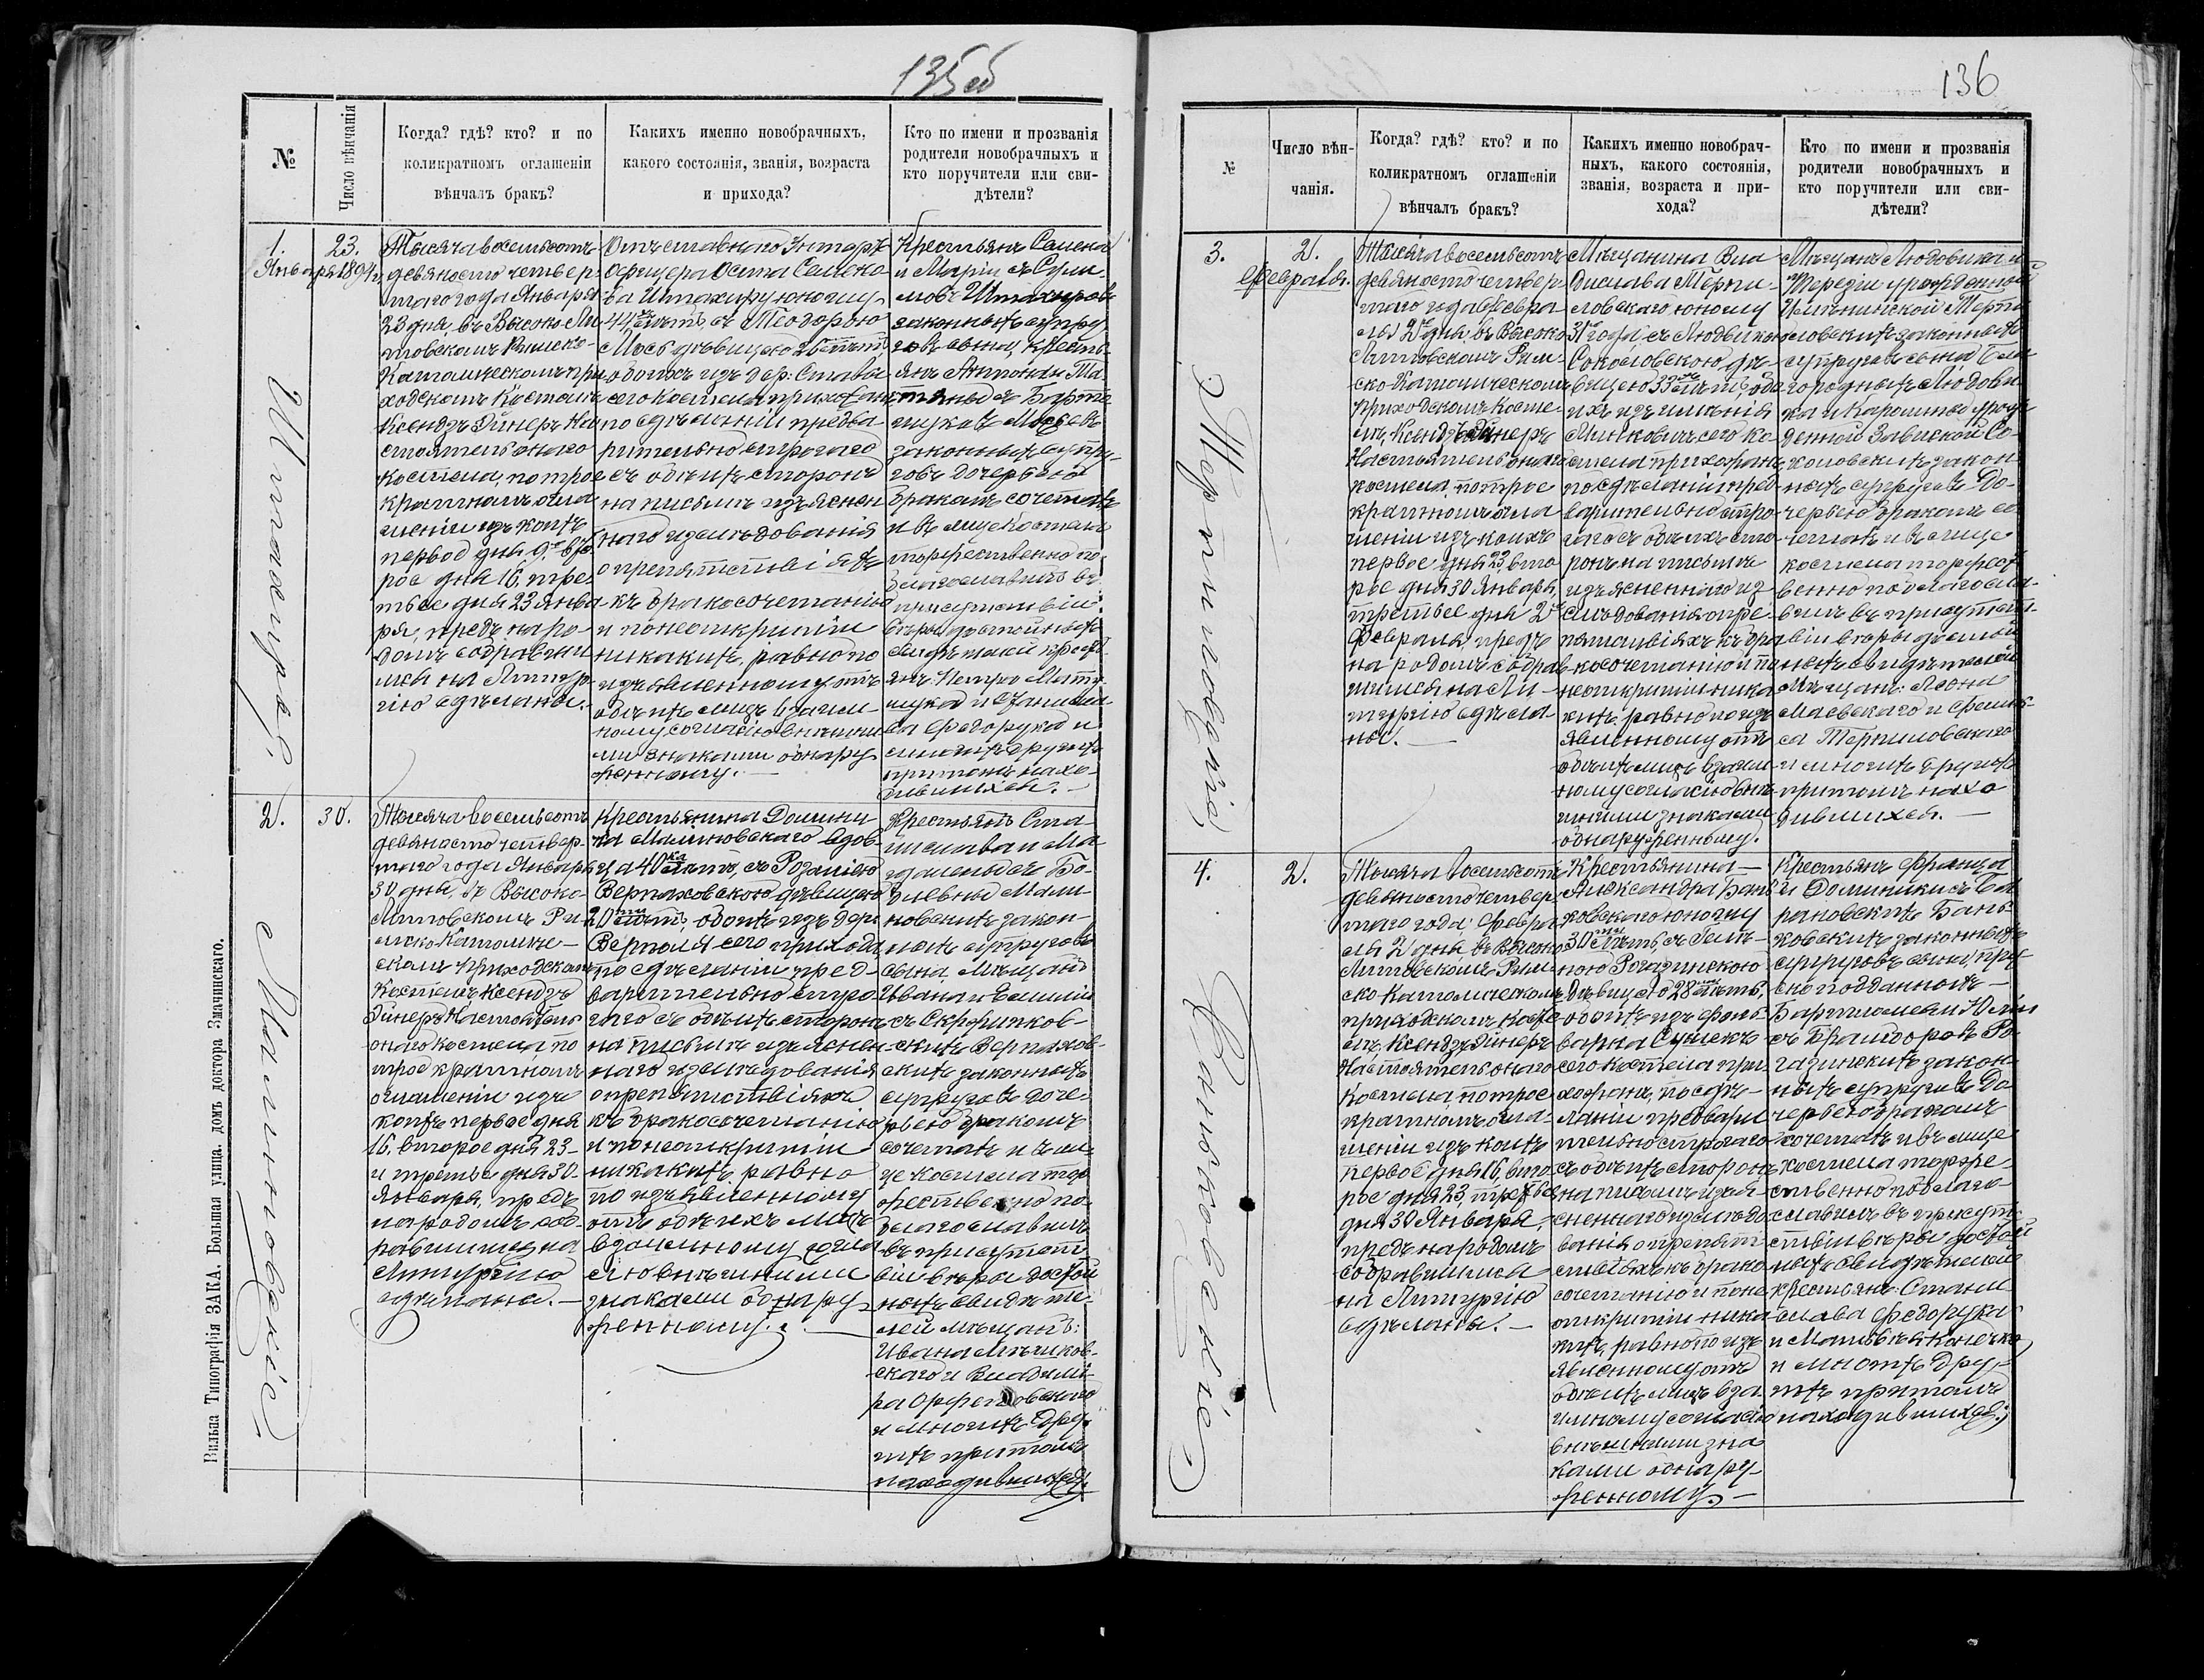 135об
№
Число вѣнчанія
Когда? гдѣ? кто? и по
коликратномъ оглашеніи
вѣнчалъ бракъ?
Какихъ именно новобрачныхъ,
какого состоянія, званія, возраста
и прихода?
Кто по имени и прозванія
родители новобрачныхъ и
кто поручители или сви-
дѣтели?
1.
Января 1894 г.
23.
Тысяча восемьсотъ
девяносто четвер-
таго года Января
23 дня, въ Высоко-Ли-
товскомъ Римско-
Католическомъ при-
ходскомъ Костелѣ
Ксендзъ Эйнеръ На-
стоятель онаго
костела, по трое-
кратномъ огла-
шеніи изъ коихъ
первое дня 9го вто-
рое дня 16, тре-
тье дня 23 Янва-
ря, предъ наро-
домъ собравши-
мся на Литур-
гію сдѣланы.
Отъставнаго Унтеръ-
Офицера Осипа Семено-
ва юношу
44 лѣтъ, съ Теодорою
Мось дѣвицею 26 лѣтъ
обоихъ изъ дер: Ставы
сего Костела прихожанъ,
по сдѣланіи предва-
рительно строгаго
съ обѣихъ сторонъ
на письмѣ изъяснен-
наго изслѣдованія
о препятствіяхъ
къ бракосочетанію
и по неоткрытіи
никакихъ, равно по
изъявленному отъ
обѣихъ лицъ взаим-
ному согласію внѣшни-
ми знаками обнару-
женному.
Крестьянъ Семена
и Маріи съ
законныхъ супру-
говъ сына, кресть-
янъ Антона и
съ Барто-
шуковъ Мосьевъ
законныхъ супру-
говъ дочерью
бракомъ сочеталъ
и въ лицѣ Костела
торжественно по-
благословилъ въ
присутствіи
вѣры достойныхъ
свидѣтелей кресть-
янъ: Петра
и
Федорука и
многихъ другихъ
при томъ нахо-
дившихся.
2.
30.
Тысяча восемьсотъ
девяносто четвер-
таго года Января
30 дня, въ Высоко-
Литовскомъ Ри-
мско Католиче-
скомъ приходскомъ
Костелѣ Ксендзъ
Эйнеръ Настоятель
онаго костела по
троекратномъ
оглашеніи изъ
коихъ первое дня
16, второе дня 23
и третье дня 30
Января, предъ
народомъ соб-
равшимся на
Литургію
сдѣланы.
Крестьянина Домини-
ка Малиновскаго вдов-
ца 40 лѣтъ, съ Розаліею
Верпаховскою дѣвицею
20 лѣтъ, обоихъ изъ дер:
Верполя сего прихода,
по сдѣланіи пред-
варительно стро-
гаго съ обѣихъ сторонъ
на письмѣ изъяснен-
наго изслѣдованія
о препятствіяхъ
къ бракосочетанію
и по неоткрытіи
никакихъ равно
по изъявленному
отъ обѣихъ лицъ
взаимному согла-
сію внѣшними
знаками обнару-
женному.
Крестьянъ Ста-
нислава и Ма-
съ Бо-
Мали-
новскихъ закон-
ныхъ супруговъ
сына, мѣщанъ
Ивана и Емиліи
съ
Верпахов-
скихъ законныхъ
супруговъ доче-
рью бракомъ
сочеталъ и въ ли-
цѣ костела тор-
жественно по-
благословилъ
въ присутст-
віи вѣры достой-
ныхъ свидѣте-
лей мѣщанъ:
Ивана
и Владими-
ра Орженовскаго
и многихъ дру-
гихъ при томъ
находившихся.
Малиновскіе
Вильна Типографія ЗАКА. Большая улица. домъ доктора Змачинскаго.
136
№
Число вѣн-
чанія.
Когда? гдѣ? кто? и по
коликратномъ оглашеніи
вѣнчалъ бракъ?
Какихъ именно новобрач-
ныхъ, какого состоянія,
званія, возраста и при-
хода?
Кто по имени и прозванія
родители новобрачныхъ и
кто поручители или сви-
дѣтели?
3.
2.
Февраля.
Тысяча восемьсотъ
девяносто четвер-
таго года Февра-
ля 2го дня, въ Высоко-
Литовскомъ Рим-
ско-Католическомъ
приходскомъ Косте-
лѣ, Ксендзъ Эйнеръ
Настоятель онаго
костела, по трое-
кратномъ огла-
шеніи изъ коихъ
первое дня 23, вто-
рое дня 30 Января,
третье дня 2го
Февраля, предъ
народомъ собрав-
шимся на Ли-
тургію сдѣла-
ны.
Мѣщанина Вла-
дислава Терпи-
ловскаго юношу
31 года съ Людвикою
Соколовскою дѣ-
вицею 33 лѣтъ, обо-
ихъ изъ имѣнія
сего ко-
стела прихожанъ,
по сдѣланіи пред-
варительно стро-
гаго съ обѣихъ сто-
ронъ на письмѣ
изъясненнаго из-
слѣдованія о пре-
пятствіяхъ къ бра-
косочетанію и по
неоткрытіи ника-
кихъ, равно по изъ-
явленному отъ
обѣихъ лицъ взаим-
ному согласію внѣ-
шними знаками
обнаруженному.
Мѣщанъ Людовика и
Терезіи урожденной
Терпи-
ловскихъ законныхъ
супруговъ сына, бла-
городныхъ Людови-
ка и Каролины урож-
денной Со-
коловскихъ закон-
ныхъ супруговъ до-
черью бракомъ со-
четалъ и въ лицѣ
костела торжест-
венно поблагосло-
вилъ въ присутст-
віи вѣры достой-
ныхъ свидѣтелей
мѣщанъ: Леона
Маевскаго и
Терпиловскаго
и многихъ другихъ
при томъ нахо-
дившихся.
Терпиловскіе
4.
2.
Тысяча восемьсотъ
девяносто четвер-
таго года, Февра-
ля 2 дня, въ Высоко-
Литовскомъ Рим-
ско Католическомъ
приходскомъ косте-
лѣ, Ксендзъ Эйнеръ
Настоятель онаго
костела, по трое-
кратномъ огла-
шеніи изъ коихъ
первое дня 16, вто-
рое дня 23, третье
дня 30 Января,
предъ народомъ
собравшимся
на Литургію
сдѣланы.
Крестьянина
Александра Бань-
ковскаго юношу
30 лѣтъ, съ
Рогазинскою
дѣвицею 28 лѣтъ,
обоихъ изъ фоль-
варка
сего костела при-
хожанъ, по сдѣ-
ланіи предвари-
тельно строгаго
съ обѣихъ сторонъ
на письмѣ изъя-
сненнаго изслѣдо-
ванія о препят-
ствіяхъ къ брако-
сочетанію и по не-
открытіи ника-
кихъ, равно по изъ-
явленному отъ
обѣихъ лицъ вза-
имному согласію
внѣшними зна-
ками обнару-
женному.
Крестьянъ Франца
и Доминики съ Ба-
рановскихъ Бань-
ковскихъ законныхъ
супруговъ сына, пру-
скоподданныхъ
Бартоломея и Юліи
съ Ро-
газинскихъ закон-
ныхъ супруговъ до-
черью бракомъ
сочеталъ и въ лицѣ
костела торже-
ственно поблаго-
славилъ въ присут-
ствіи вѣры достой-
ныхъ свидѣтелей
крестьянъ: Стани-
слава Федорука
и Матвѣя
и многихъ дру-
гихъ при томъ
находившихся.
Баньковскіе